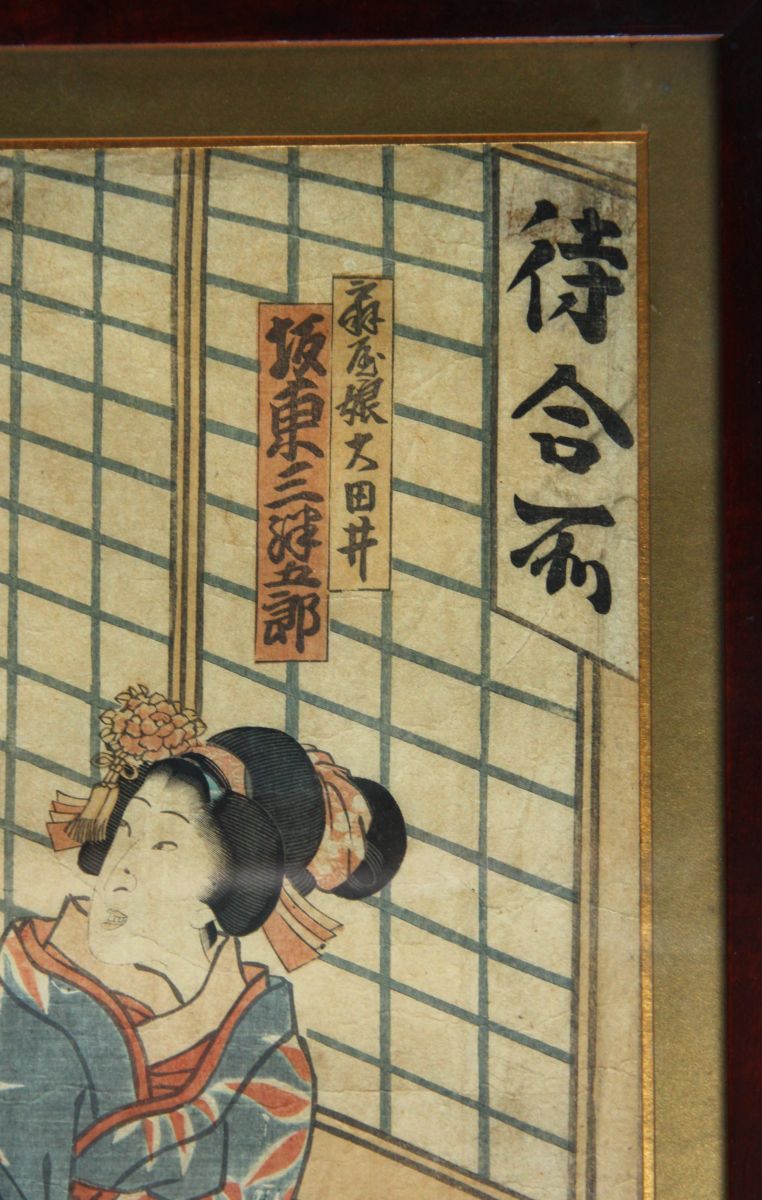 待合所
扇屋娘大田井
坂東三津五郎